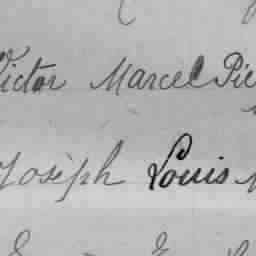 Victor Marcel Pie
Joseph Louis